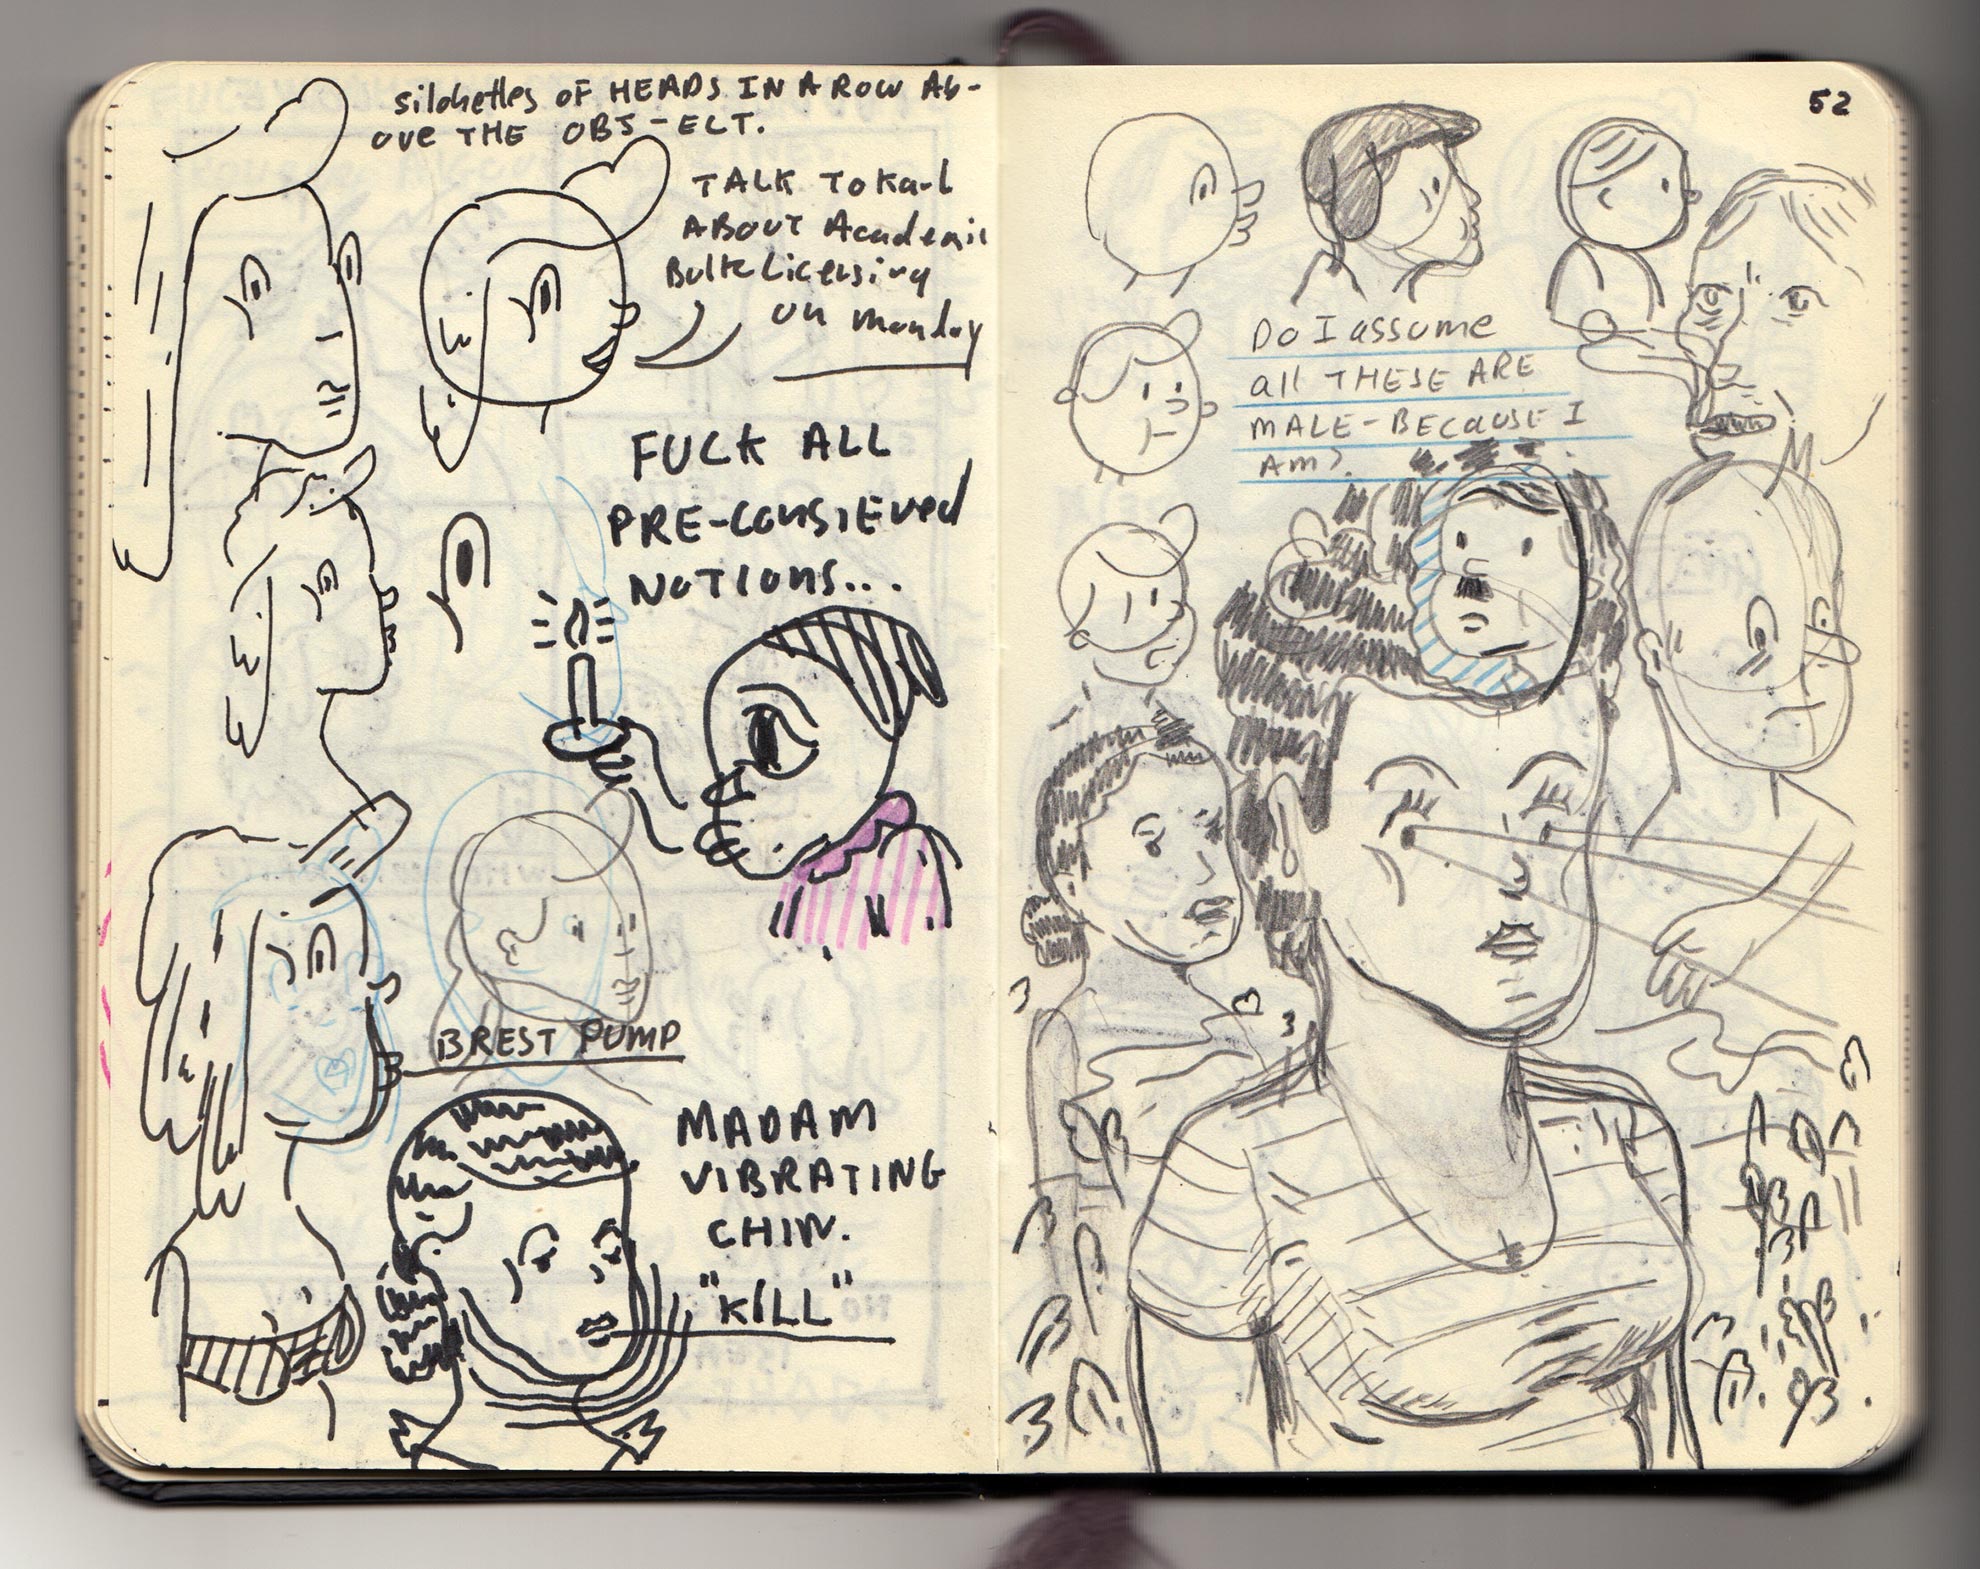 silohettes OF HEADS IN A ROW Ab-
ove THE OBJ-ECT.
TALK To Karl
ABOUT Academic
Bulk Licensing
on monday
FUCK ALL
PRE-CONSIEVED
NOTIONS...
BREST PUMP
MADAM
VIBRATING
CHIN.
"KILL"
52
Do I assume
all THESE ARE
MALE-BECAUSE I
AM?